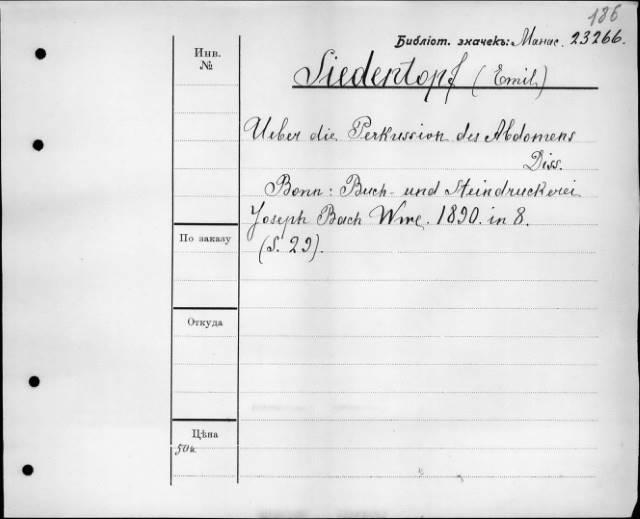 186
Библіот. значекъ: Манас. 23266.
Инв.
№
Siedentopf (Emil)
Ueber die Perkussion des Abdomens
Diss.
Bonn: Buch- und Steindruckerei
Joseph Bach Wwe. 1890. in 8.
(S. 29).
По заказу
Откуда
Цѣна
50к